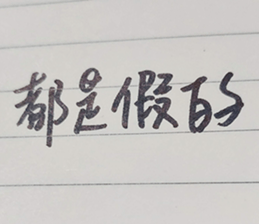 都是假的